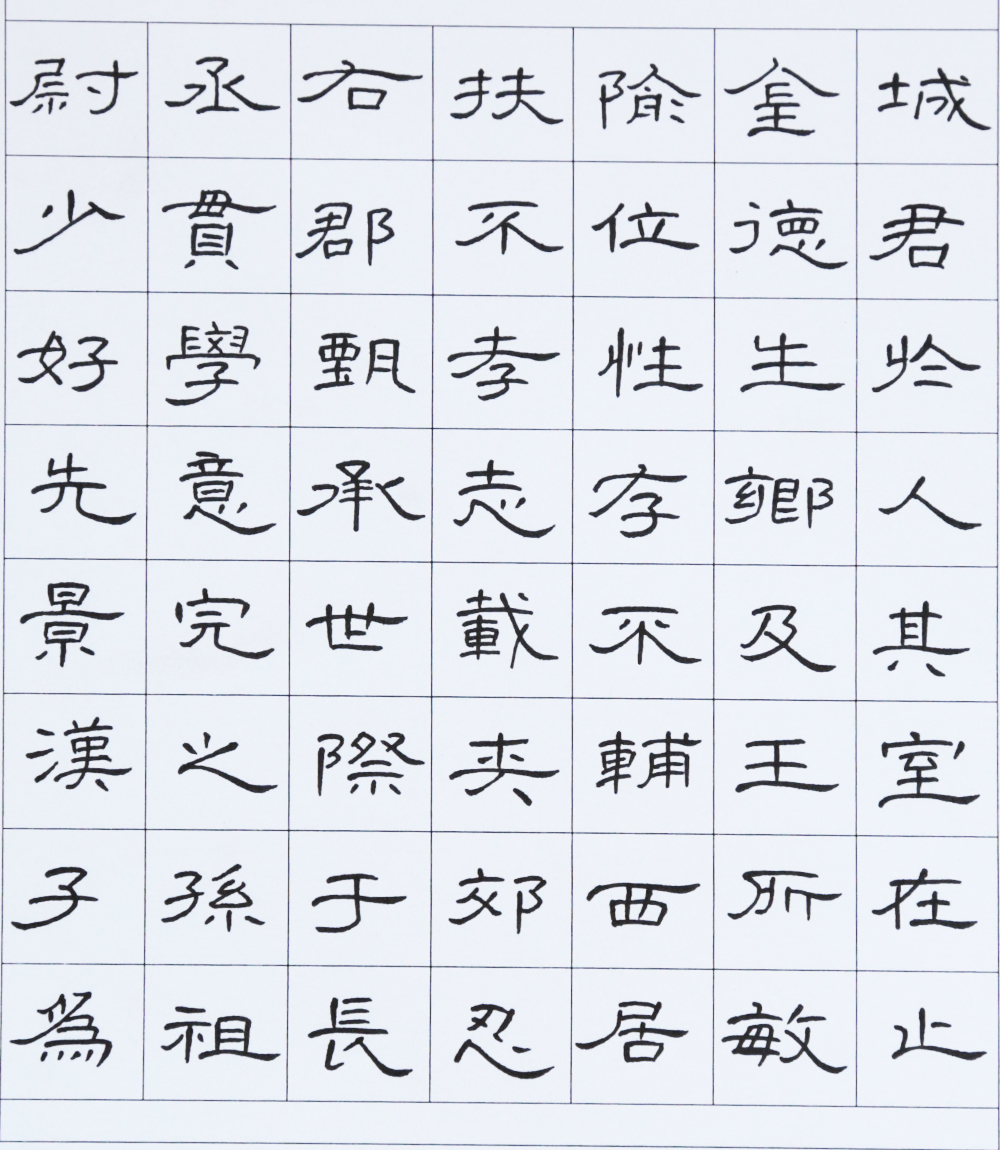 尉丞右扶隃金城
少貫郡不位德君
好學甄孝性生於
先意承志存鄉人
景完世載不及其
漢之際夾輔王室
子孫于郊西所在
為祖長忍居敏止